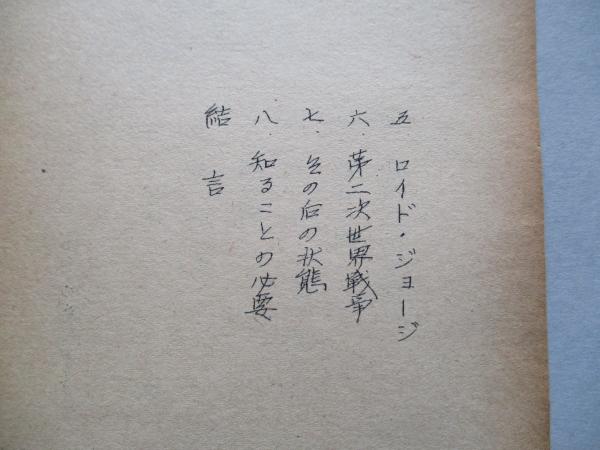 五 ロイド・ジョージ
六. 第二次世界戦争
七. 其の后の状態
八. 知ることの必要
結言